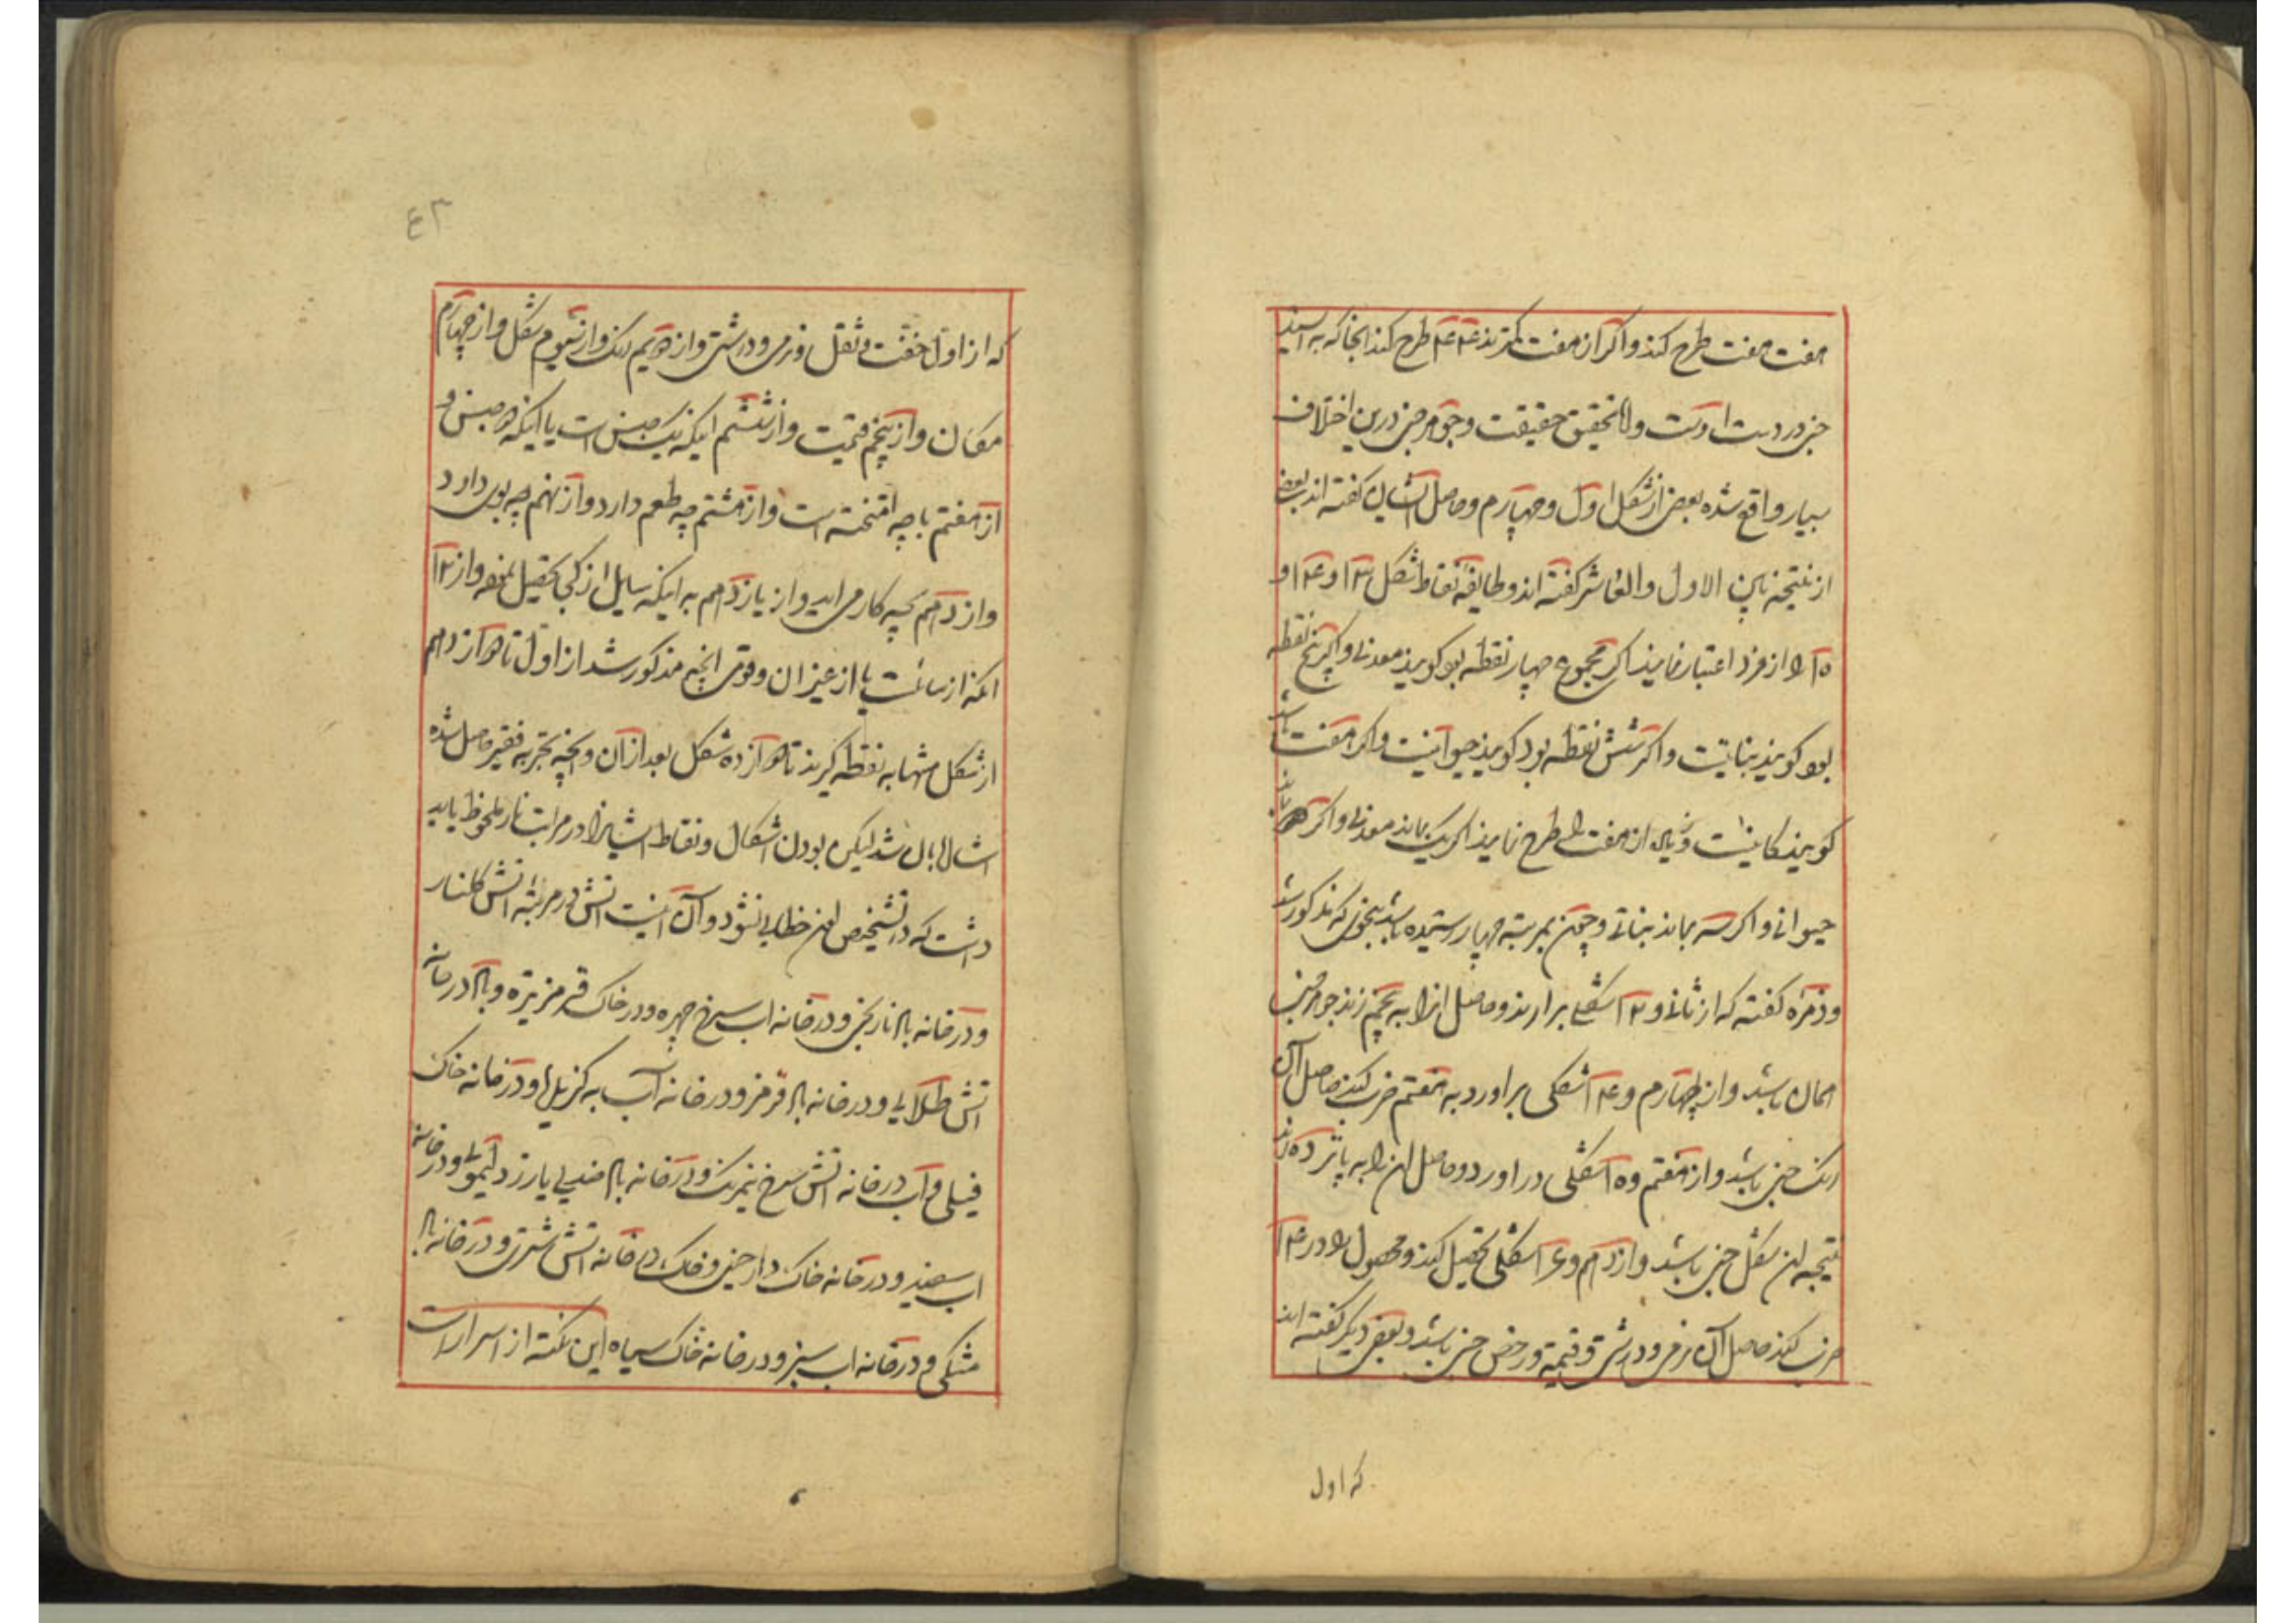 هفت هفت طرح کند و اگر از هفت کمتر بود ۴ ۴ طرح کند انجا که به اسید
جنی در دست اوست و اما تحقیق حقیقت و جوهر جنی درین اختلاف
بسیار واقع شده بعضی از شکل اول و چهارم و حاصل ایشان گفته اند بعضی
از نتیجه باین الاول والعاشر گفته اند و طایفه نقاط شکل ۱۳ و ۱۴ و
۱۵ را از فرد اعتبار نمایند اگر مجموع چهار نقطه بود گویند معدنی و اگر پنج نقطه
بود گویند نباتیست و اگر شش نقطه بود گویند حیوانیست و اگر هفت باشد
گویند کانیست و زیاده از هفت را طرح نمایند اگر یک ماند معدنی و اگر دو ماند
حیوانی و اگر سه بماند نباتی و چون بمرتبه چهار رسیده باشد بنحوی که مذکور شد
و زمره گفته که از ثانی و ۱۲ شکلی برارند و حاصل انرا به پنجم زنند جوهر جنی
همان باشد و از چهارم و ۱۴ شکلی براورد به هفتم ضرب کند حاصل آن
رنک جنی باشد و از هفتم و ۱۵ شکلی در اورد و حاصل ان را به پانزده زند
نتیجه ان شکل جنی باشد و از دهم و ۱۶ شکلی تحصیل کند و محصول را در ۱۴
ضرب کند حاصل آن نرمی و درشتی و قیمه و رخص جنی باشد و بعضی دیگر گفته اند
که اول
۴۳
که از اول خفت و ثقل و نرمی و درشتی و از دویم رنک و از سیوم شکل و از چهارم
مکان و از پنجم قیمت و از ششم اینکه یک جنس است یا اینکه دو جنس و
از هفتم با چه امتخته است و از هشتم چه طعم دارد و از نهم چه بوی دارد
و از دهم بچه کار می اید و از یازدهم به اینکه سایل از کجا تحصیل نموده و از ۱۲
انکه از سائیست یا از غیر ان و قوتی انچه مذکور شد از اول تا دوازدهم
از شکل مشهابه نقطه گیرند تا دوازده شکل بعد از آن و انچه بتجربه فقیر حاصل شده
اشال بال شد لیکن بودن اشکال و نقاط ایشانرا در مراتب نار ملحوظ باید
داشت که در تشخیص لون خطایی نشود و آن اینست اتش در مرتبه اتش گلنار
و در خانه باد نارنجی و در خانه اب سرخ چهره و در خاک قرمز تیره و باد در خانه
اتش طلایی و در خانه باد قرمز و در خانه آب به گزیلی و در خانه خاک
فیلی و آب در خانه اتش سرخ نیمرنک و در خانه باد صندلی یا زرد لیمویی و در خانه
اب سفید و در خانه خاک دارچینی و خاک در خانه اتش شتری و در خانه باد
مشکی و در خانه اب سبز و در خانه خاک سیاه این نکته از اسرار است